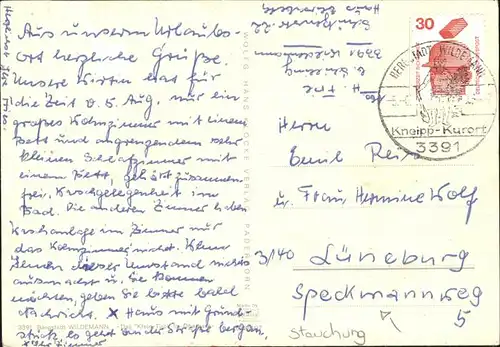 Aus unserm Urlaubs-
ort herzliche Grüße.
Unsere Wirtin hat für
die Zeit v. 5. Aug. nur ein
großes Wohnzimmer mit einem
Bett und angrenzendem sehr
kleinen Schlafzimmer mit
einem Bett, geht zusammen
frei, Kochgelegenheit im
Bad. Die anderen Zimmer haben
Kochanlage im Zimmer nur
das Wohnzimmer nicht. Wenn
Ihnen dieser Umstand nichts
ausmacht u. Sie kommen
möchten, geben Sie bitte bald
Nachricht. x Haus mit Grund-
stück es geht von der Straße bergan,
WOLFGANG HANS KLOCKE VERLAG, PADERBORN
3391 Bergstadt WILDEMANN
30
BERGSTADT WILDEMANN
Kneipp-Kurort
3391
Herrn
Emil
u. Frau Hermine Wolf
3140 Lüneburg
Speckmannweg
5
Stauchung